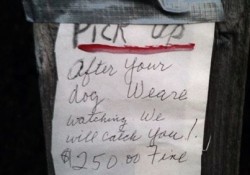 PICK UP
After Your
dog Weare
watching We
will catch you!
$250.00 Fine